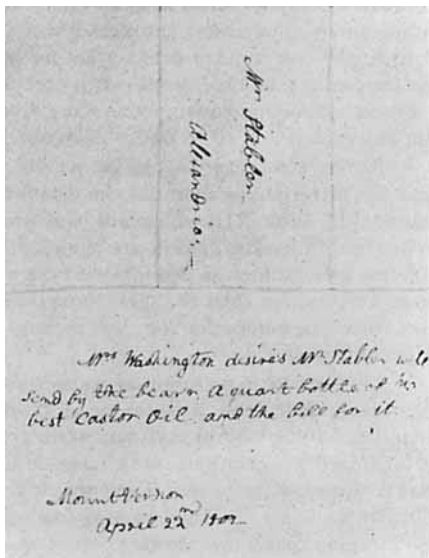 Mr Stabler
Alexandria.
Mrs Washington desires Mr Stabler will
send by the bearer a quart bottle of his
best Castor Oil and the bill for it.
Mount Vernon
April 22nd 1802